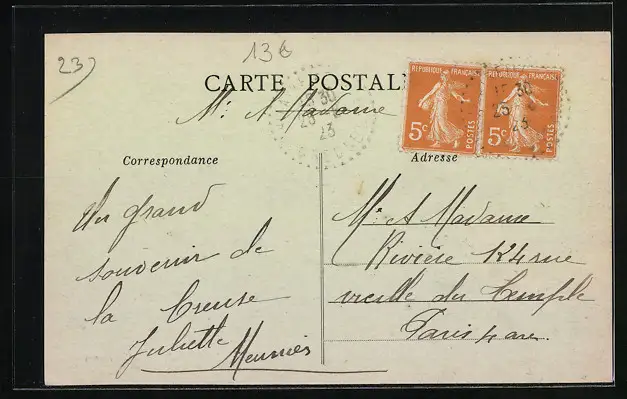 23)
13€
CARTE POSTAL
Mr & Madame
RÉPUBLIQUE FRANÇAISE
5c
POSTES
RÉPUBLIQUE FRANÇAISE
5c
POSTES
15 30
25
23
Correspondance
Adresse
Un grand
souvenir de
la Creuse
Juliette Meunier
Mr & Madame
Rivière 124 rue
vieille du Temple
Paris 4 arr.